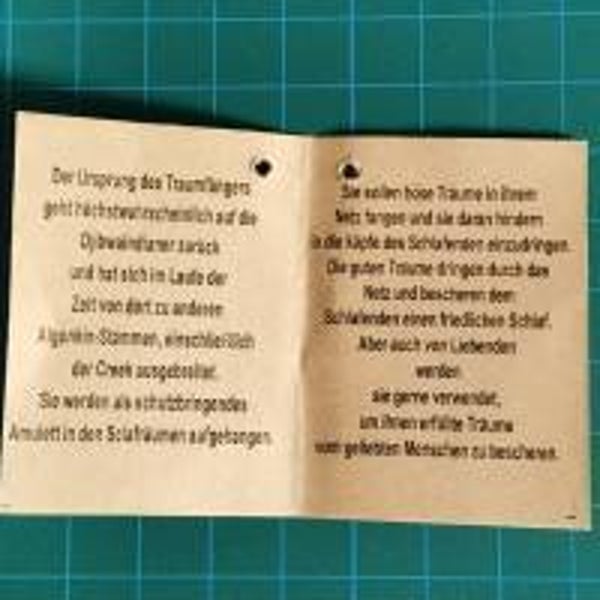 Der Ursprung des Traumfängers
geht höchstwahrscheinlich auf die
Ojibwaindianer zurück
und hat sich im Laufe der
Zeit von dort zu anderen
Algonkin-Stämmen, einschließlich
der Creek ausgebreitet.
Sie werden als schutzbringendes
Amulett in den Schafräumen aufgehangen.
Sie sollen böse Träume in ihrem
Netz fangen und sie daran hindern
in die Köpfe des Schlafenden einzudringen.
Die guten Träume dringen durch das
Netz und bescheren dem
Schlafenden einen friedlichen Schlaf.
Aber auch von Liebenden
werden
sie gerne verwendet,
um ihnen erfüllte Träume
vom geliebten Menschen zu bescheren.